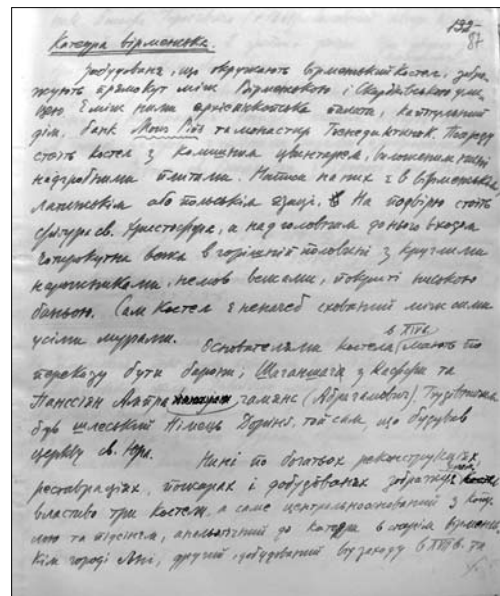 132
87
Катедра вірменська.
Забудовання, що окружають вірменський костел, 
жують прямокут між Вірменською і Скарбківського ули-
цею. Є між ними архієпископська палата, капітульний
дім, банк Mons Pius та монастир Бенедиктинок. Посеред
стоїть костел з колишнім цвинтарем, виложеним нині
надгробними плитами. Написи на них є в вірменській,
латинській або польській язиці. На подвірю стоїть
фігура св. Христофора, а над головним до нього входом
чотирокутна вежа в горішній половині з круглими
наріжниками, немов вежами, покриті високою
банею. Сам костел є неначеб схований між сими
усіми мурами.
в XIVв.
Основателями костела мають по
переказу бути барони, Шагіншаг з Каффи та
Паносіян Абра гамянс (Абрагамович). Будівничим
був шлеський німець Дорінг, той сам, що будував
церкву св. Юра.
Нині по богатьох реконструкціях,
реставраціях, пожарах і добудовах 
властиво три костели, а саме центральноосновний з копу-
лою та підсінєм, анальогічний до катедри в старім вірменсь-
кім городі Ані, другий, добудований від заходу в XVIIв. та